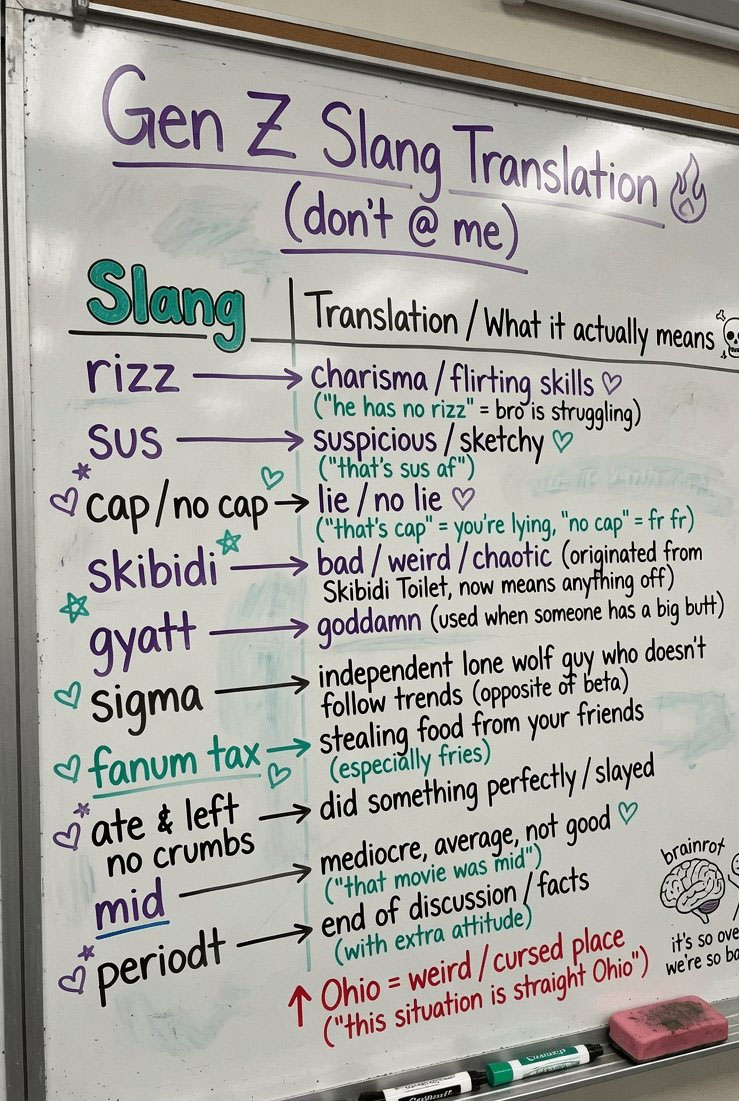 Gen Z Slang Translation
(don't @ me)
Slang | Translation / What it actually means
rizz → charisma / flirting skills ♡
("he has no rizz" = bro is struggling)
sus → suspicious / sketchy ♡
("that's sus af")
cap / no cap → lie / no lie ♡
("that's cap" = you're lying, "no cap" = fr fr)
skibidi → bad / weird / chaotic (originated from
Skibidi Toilet, now means anything off)
gyatt → goddamn (used when someone has a big butt)
sigma → independent lone wolf guy who doesn't
follow trends (opposite of beta)
fanum tax → stealing food from your friends
(especially fries)
ate & left
no crumbs → did something perfectly / slayed
mid → mediocre, average, not good ♡
("that movie was mid")
periodt → end of discussion / facts
(with extra attitude)
↑ Ohio = weird / cursed place
("this situation is straight Ohio")
brainrot
it's so
we're so